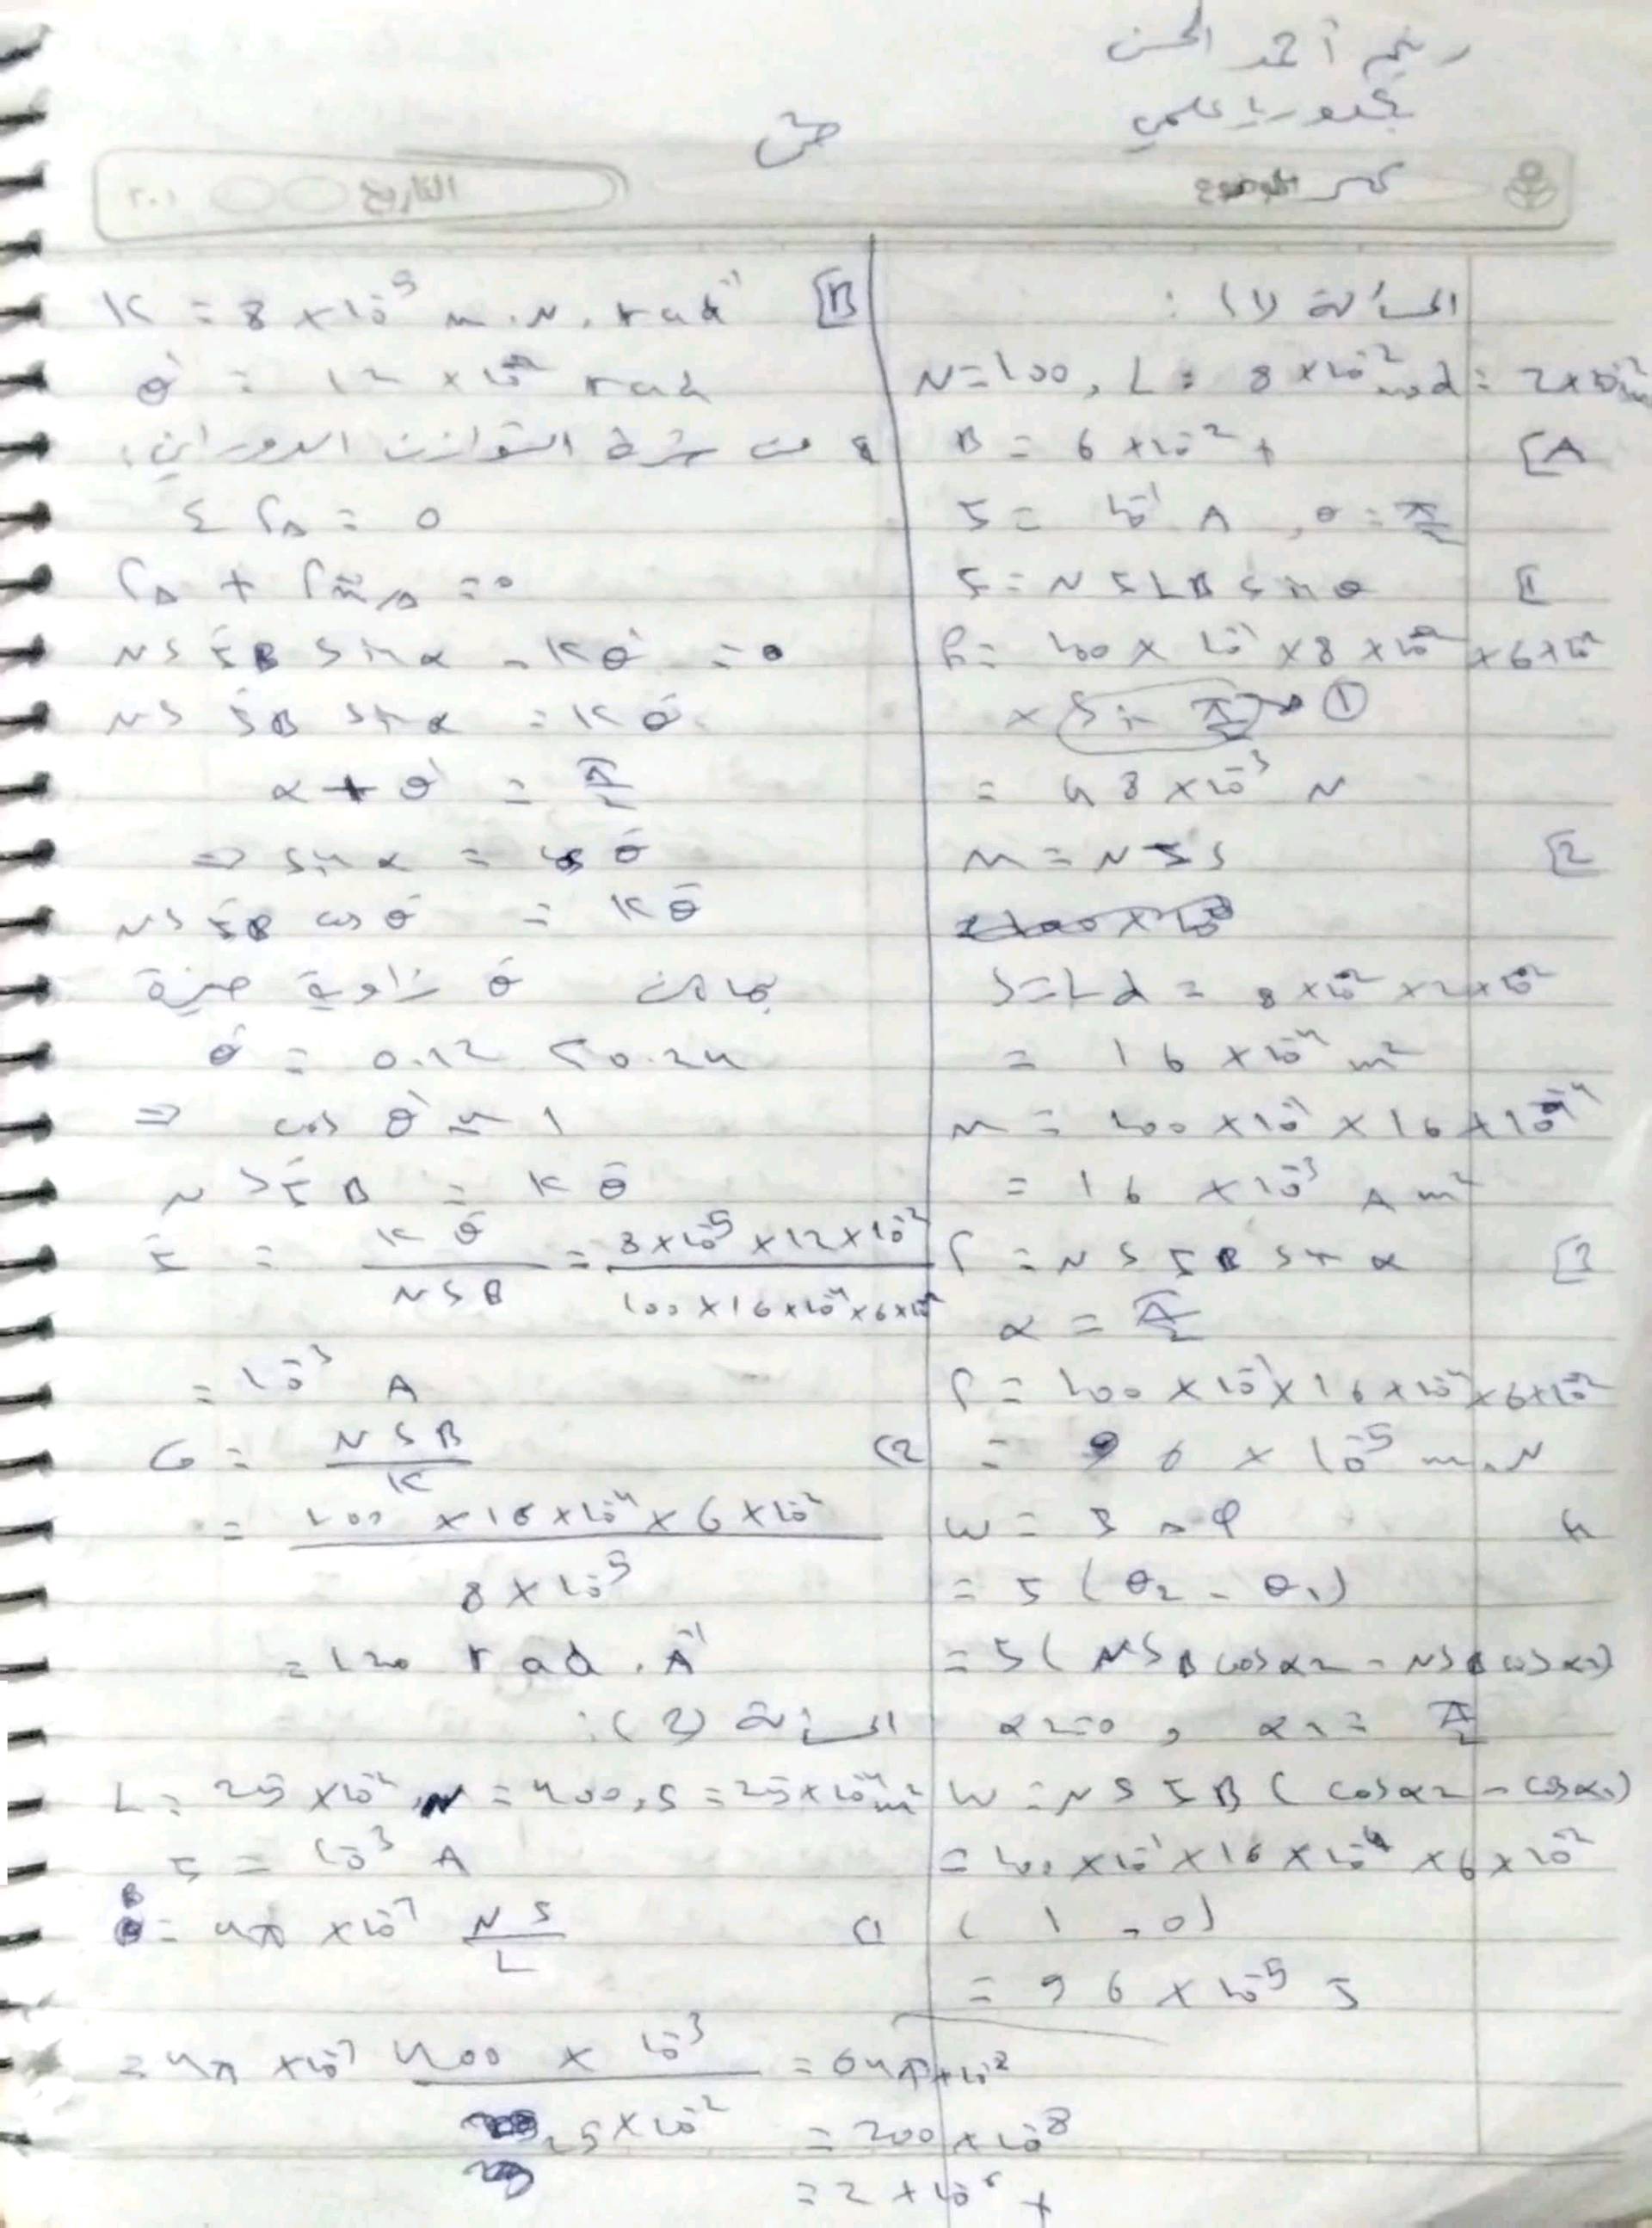 ريم أحمد الحسن
بكلوريا علمي
حمص
المسألة (1) :
N = 100 , L = 8 × 10⁻² m , d = 2 × 10⁻² m
[A
B = 6 × 10⁻² T
I = 10⁻¹ A , θ = π/2
[1
F = N I L B sin θ
F = 100 × 10⁻¹ × 8 × 10⁻² × 6 × 10⁻²
× sin π/2 → ①
= 48 × 10⁻³ N
[2
M = N I S
S = L d = 8 × 10⁻² × 2 × 10⁻²
= 16 × 10⁻⁴ m²
M = 100 × 10⁻¹ × 16 × 10⁻⁴
= 16 × 10⁻³ A m²
[3
Γ = N S I B sin α
α = π/2
Γ = 100 × 10⁻¹ × 16 × 10⁻⁴ × 6 × 10⁻²
= 96 × 10⁻⁵ m.N
4
W = I Δ φ
= I ( θ₂ - θ₁ )
= I ( N S B cos α₂ - N S B cos α₁ )
α₂ = 0 , α₁ = π/2
W = N S I B ( cos α₂ - cos α₁ )
= 100 × 10⁻¹ × 16 × 10⁻⁴ × 6 × 10⁻²
( 1 - 0 )
= 96 × 10⁻⁵ J
[B
K = 8 × 10⁻⁵ m.N.rad⁻¹
θ' = 12 × 10⁻² rad
من شرط التوازن الدوراني:
Σ Γ_Δ = 0
N S I B sin α - K θ' = 0
N S I B sin α = K θ'
α + θ' = π/2
⇒ sin α = cos θ'
N S I B cos θ' = K θ'
بما أن θ' زاوية صغيرة
θ' = 0.12 < 0.24
⇒ cos θ' ≈ 1
N S I B = K θ'
I = K θ' / N S B = 8 × 10⁻⁵ × 12 × 10⁻² / 100 × 16 × 10⁻⁴ × 6 × 10⁻²
= 10⁻³ A
(2
G = N S B / K
= 100 × 16 × 10⁻⁴ × 6 × 10⁻² / 8 × 10⁻⁵
= 120 rad . A⁻¹
المسألة (2) :
L = 25 × 10⁻² , N = 400 , S = 25 × 10⁻⁴ m²
I = 10⁻³ A
(1
B = 4π × 10⁻⁷ N I / L
= 4π × 10⁻⁷ 400 × 10⁻³ / 25 × 10⁻² = 64π × 10⁻⁸
= 200 × 10⁻⁸
= 2 × 10⁻⁶ T